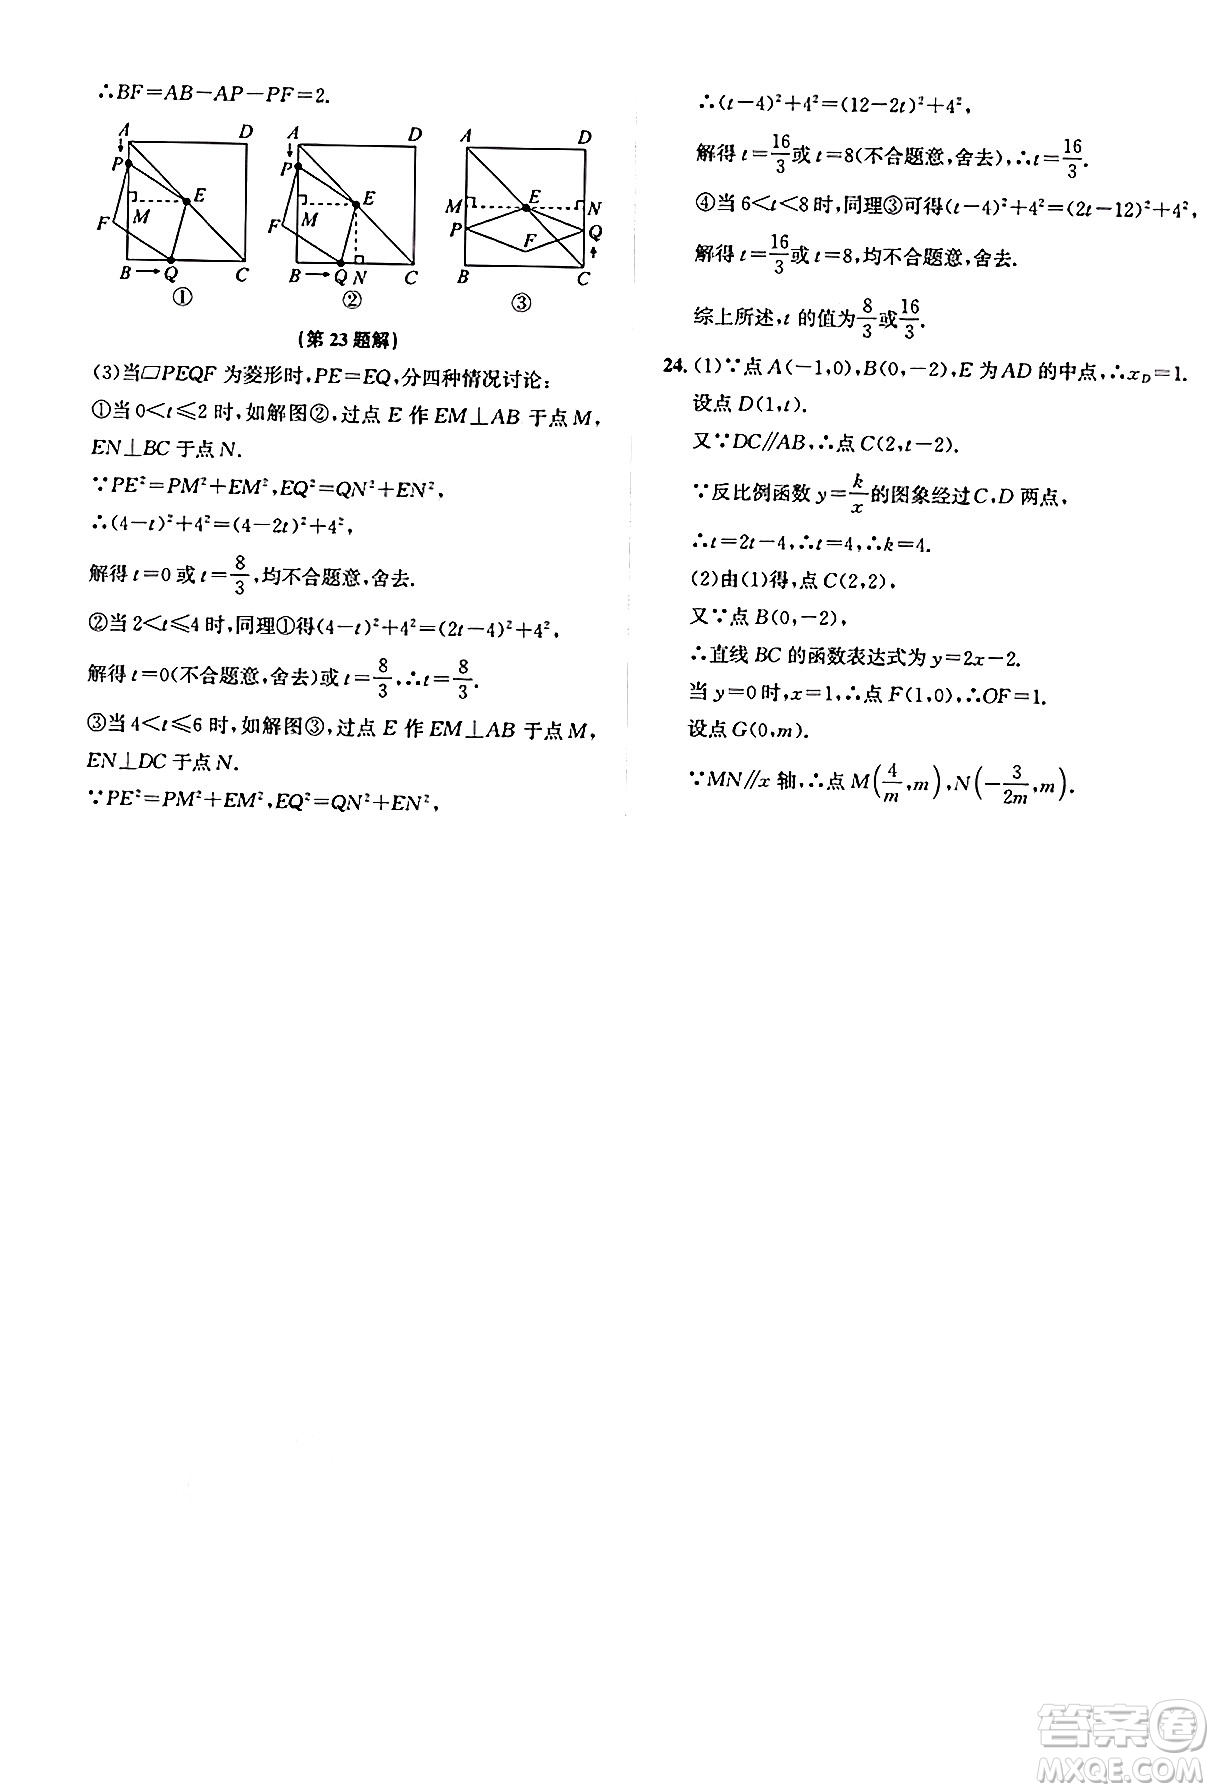 ∴BF=AB-AP-PF=2.
A D A D A D
P E P E M E N
M M P Q
F F F
B Q C B Q N C B C
① ② ③
(第23题解)
(3)当▱PEQF 为菱形时,PE=EQ,分四种情况讨论:
①当 0<t≤2 时,如解图②,过点 E 作 EM⊥AB 于点 M,
EN⊥BC 于点 N.
∵PE²=PM²+EM²,EQ²=QN²+EN²,
∴(4-t)²+4²=(4-2t)²+4²,
解得 t=0 或 t=8/3,均不合题意,舍去.
②当 2<t≤4 时,同理①得(4-t)²+4²=(2t-4)²+4²,
解得 t=0(不合题意,舍去)或 t=8/3,∴t=8/3.
③当 4<t≤6 时,如解图③,过点 E 作 EM⊥AB 于点 M,
EN⊥DC 于点 N.
∵PE²=PM²+EM²,EQ²=QN²+EN²,
∴(t-4)²+4²=(12-2t)²+4²,
解得 t=16/3或 t=8(不合题意,舍去),∴t=16/3.
④当 6<t<8 时,同理③可得(t-4)²+4²=(2t-12)²+4²,
解得 t=16/3或 t=8,均不合题意,舍去.
综上所述,t 的值为8/3或16/3.
24. (1)∵点 A(-1,0),B(0,-2),E 为 AD 的中点,∴x_D=1.
设点 D(1,t).
又∵DC//AB,∴点 C(2,t-2).
∵反比例函数 y=k/x的图象经过 C,D 两点,
∴t=2t-4,∴t=4,∴k=4.
(2)由(1)得,点 C(2,2),
又∵点 B(0,-2),
∴直线 BC 的函数表达式为 y=2x-2.
当 y=0 时,x=1,∴点 F(1,0),∴OF=1.
设点 G(0,m).
∵MN//x 轴,∴点 M(4/m,m),N(-3/2m,m).
答案圈
MXQE.COM